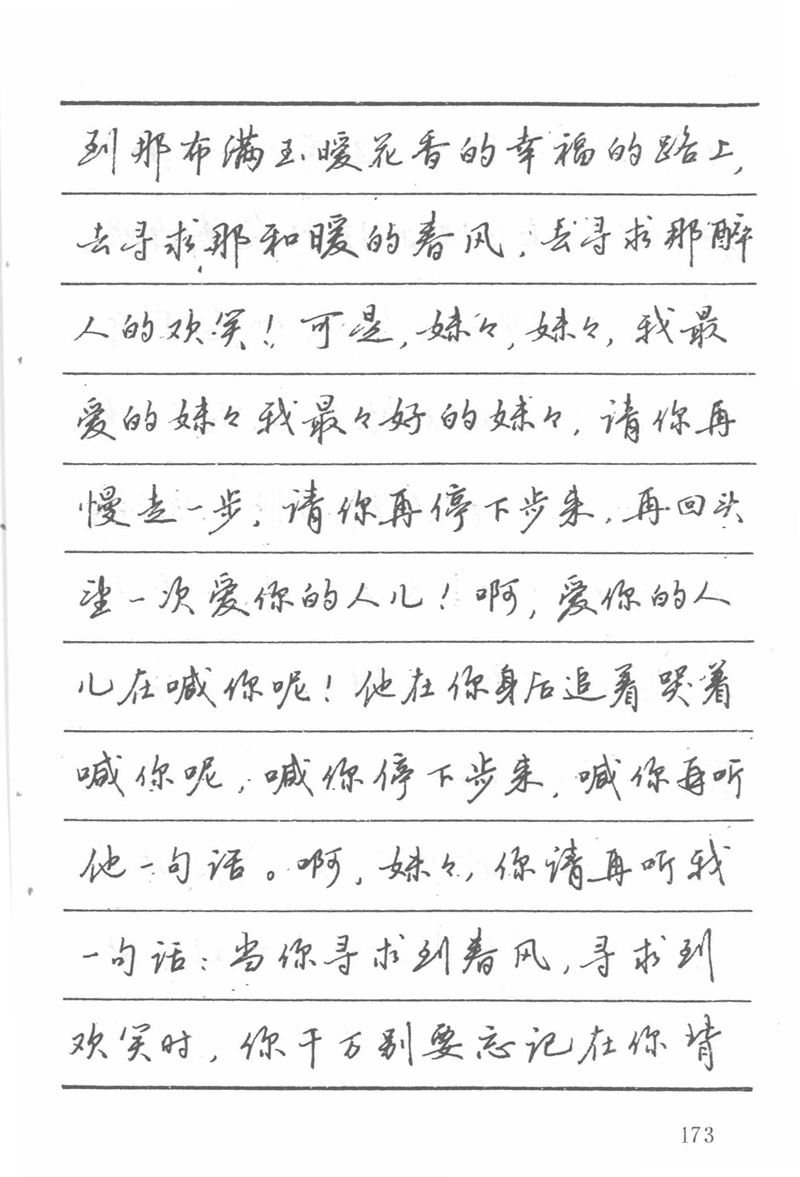 到那布满玉暖花香的幸福的路上,
去寻求那和暖的春风,去寻求那醉
人的欢笑!可是,妹々,妹々,我最
爱的妹々我最々好的妹々,请你再
慢走一步,请你再停下步来,再回头
望一次爱你的人儿!啊,爱你的人
儿在喊你呢!他在你身后追着哭着
喊你呢,喊你停下步来,喊你再听
他一句话。啊,妹々,你请再听我
一句话:当你寻求到春风,寻求到
欢笑时,你千万别要忘记在你背
173